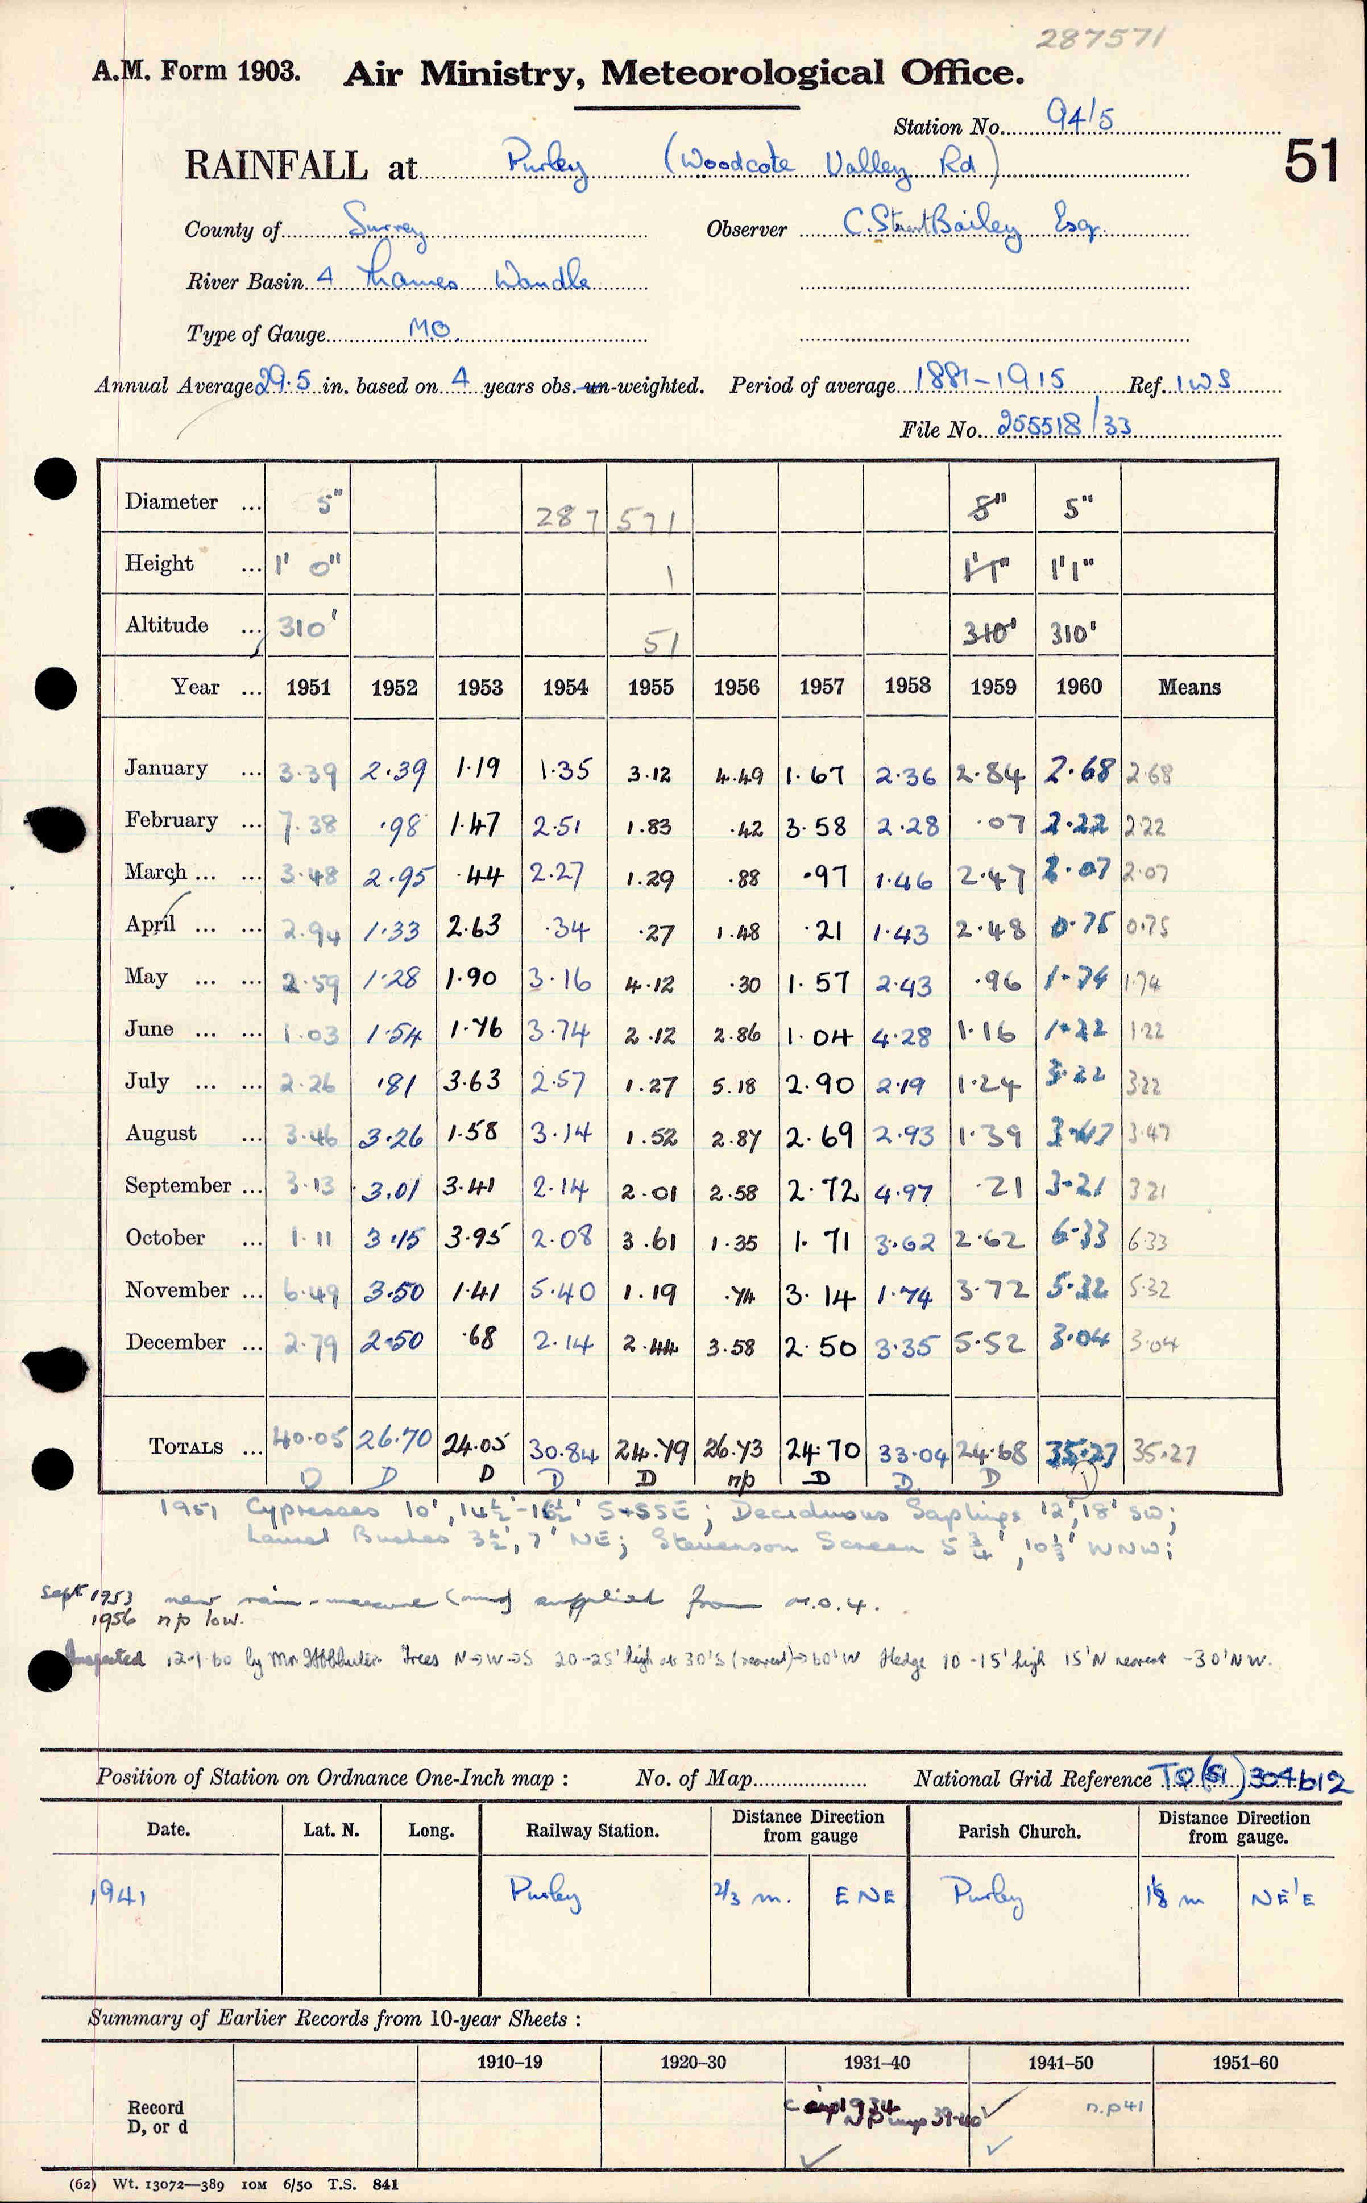 287571
A.M. Form 1903. Air Ministry, Meteorological Office.
Station No. 94/5
RAINFALL at Purley (Woodcote Valley Rd) 51
County of Surrey Observer C. Stuart Bailey Esq.
River Basin 4 Thames Wandle
Type of Gauge MO.
Annual Average 29.5 in. based on 4 years obs. un-weighted. Period of average 1881-1915 Ref. IWS
File No. 255518/33
Diameter ... 5" 287571 8" 5"
Height ... 1' 0" 1 1'1" 1'1"
Altitude ... 310' 51 310' 310'
Year ... 1951 1952 1953 1954 1955 1956 1957 1958 1959 1960 Means
January ... 3.39 2.39 1.19 1.35 3.12 4.49 1.67 2.36 2.84 2.68 2.68
February ... 7.38 .98 1.47 2.51 1.83 .42 3.58 2.28 .07 2.22 2.22
March ... ... 3.48 2.95 .44 2.27 1.29 .88 .97 1.46 2.47 2.07 2.07
April ... ... 2.94 1.33 2.63 .34 .27 1.48 .21 1.43 2.48 0.75 0.75
May ... ... 2.59 1.28 1.90 3.16 4.12 .30 1.57 2.43 .96 1.74 1.74
June ... ... 1.03 1.54 1.76 3.74 2.12 2.86 1.04 4.28 1.16 1.22 1.22
July ... ... 2.26 .81 3.63 2.57 1.27 5.18 2.90 2.19 1.24 3.22 3.22
August ... 3.46 3.26 1.58 3.14 1.52 2.87 2.69 2.93 1.39 3.47 3.47
September ... 3.13 3.01 3.41 2.14 2.01 2.58 2.72 4.97 .21 3.21 3.21
October ... 1.11 3.15 3.95 2.08 3.61 1.35 1.71 3.62 2.62 6.33 6.33
November ... 6.49 3.50 1.41 5.40 1.19 .74 3.14 1.74 3.72 5.32 5.32
December ... 2.79 2.50 .68 2.14 2.44 3.58 2.50 3.35 5.52 3.04 3.04
TOTALS ... 40.05 26.70 24.05 30.84 24.79 26.73 24.70 33.04 24.68 35.27 35.27
D D D D D n/p D D D D
1951 Cypresses 10', 14½'-16½' S+SSE; Deciduous Saplings 12', 18' SW;
Laurel Bushes 3½', 7' NE; Stevenson Screen 5¾', 10⅓' WNW;
Sept 1953 new rain-measure supplied from M.O.4.
1956 n/p low.
Inspected 12-1-60 by Mr. Trees N→W→S 20-25' high at 30'S (nearest)→60'W Hedge 10-15' high 15'N nearest -30'NW.
Position of Station on Ordnance One-Inch map : No. of Map National Grid Reference TQ (51) 304612
Date. Lat. N. Long. Railway Station. Distance Direction from gauge Parish Church. Distance Direction from gauge.
1941 Purley 2/3 m. ENE Purley 1⅛ m NE'E
Summary of Earlier Records from 10-year Sheets :
1910–19 1920–30 1931–40 1941–50 1951–60
Record D, or d 1934 39-40 n.p 41
(62) Wt. 13072—389 10M 6/50 T.S. 841